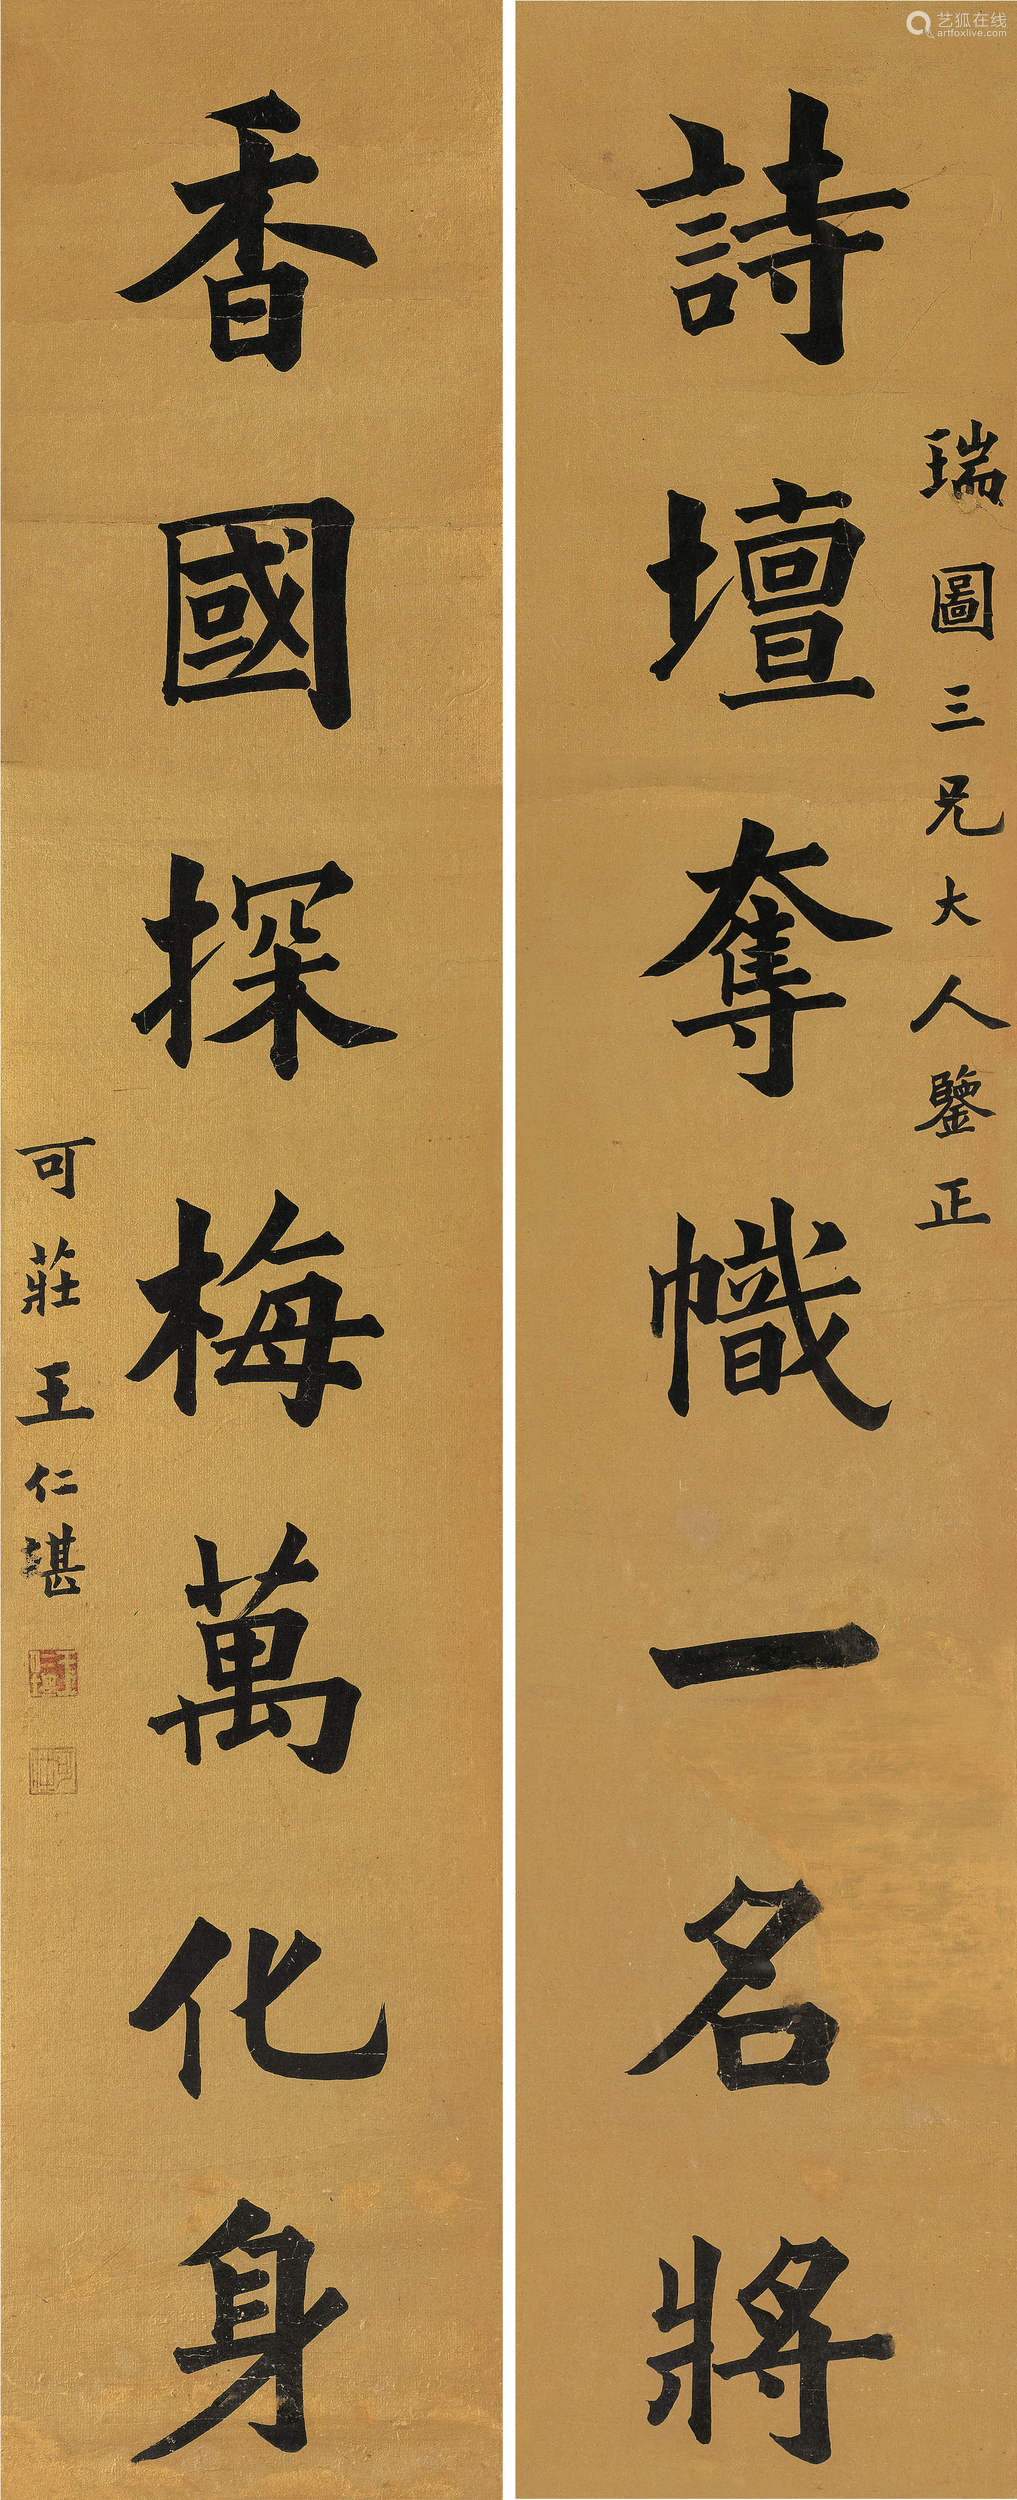 詩壇奪幟一名將
瑞圖三兄大人鑒正
香國探梅萬化身
可莊王仁堪
艺狐在线
artfoxlive.com